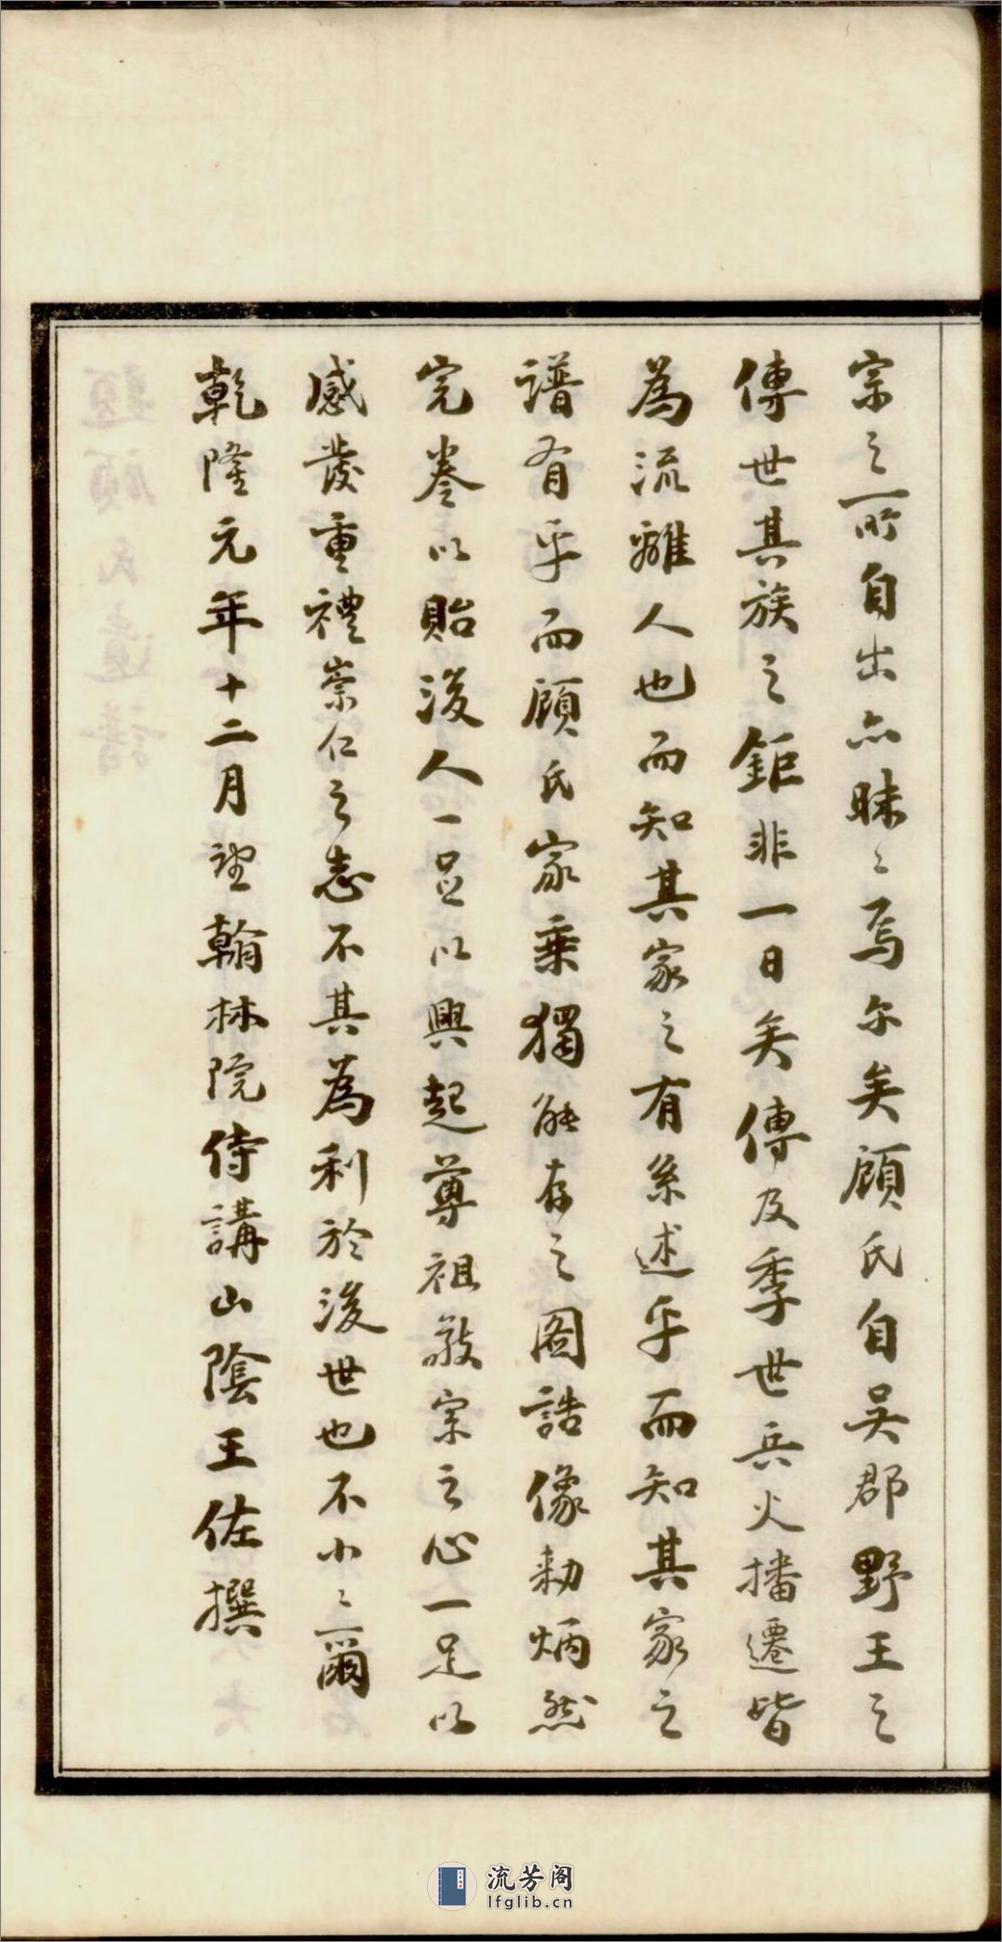 宗之所自出亦昧々焉尔矣顧氏自吳郡野王之
傳世其族之鉅非一日矣傳及季世兵火播遷皆
為流離人也而知其家之有系述乎而知其家之
譜有乎而顧氏家乘獨能存之圖誥像勅炳然
完卷以貽後人一足以興起尊祖敬宗之心一足以
感發重禮崇仁之志不其為利於後世也不小々爾
乾隆元年十二月望翰林院侍講山陰王佐撰
流芳阁
lfglib.cn